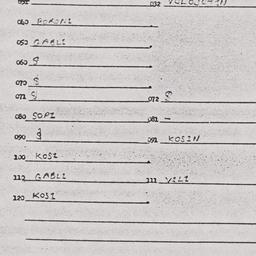 040 BORONI
050 GABLI
060 8
070 8
071 8 072 8
080 SOPI 081 -
090 091 KOSIN
100 KOSI
110 GABLI 111 VILI
120 KOSI